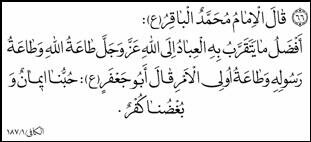 (٦٦) قالَ الْإِمَامُ مُحَمَّدٌ الْبَاقِرُ (ع):
أَفْضَلُ مَا يَتَقَرَّبُ بِهِ الْعِبَادُ إِلَى اللهِ عَزَّ وَجَلَّ طَاعَةُ اللهِ وَطَاعَةُ
رَسُولِهِ وَطَاعَةُ أُولِى الْأَمْرِ قَالَ أَبُو جَعْفَرٍ (ع): حُبُّنَا إِيمَانٌ وَ
بُغْضُنَا كُفْرٌ.
الكافى ١٨٧/١